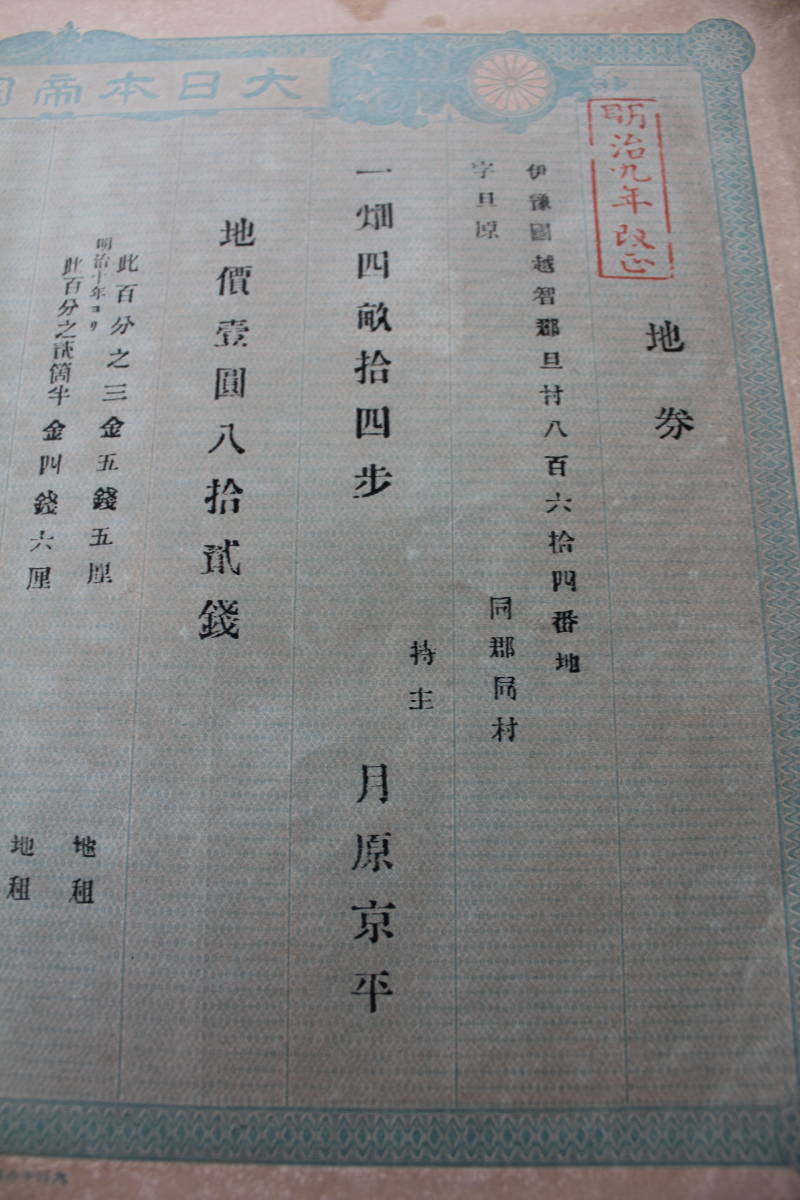 大日本帝國
明治九年改正
地券
伊豫國越智郡旦村八百六拾四番地
字旦原
同郡同村
持主 月原京平
一畑四畝拾四步
地價壹圓八拾貳錢
此百分之三金五錢五厘 地租
明治十年ヨリ
此百分之貳箇半金四錢六厘 地租